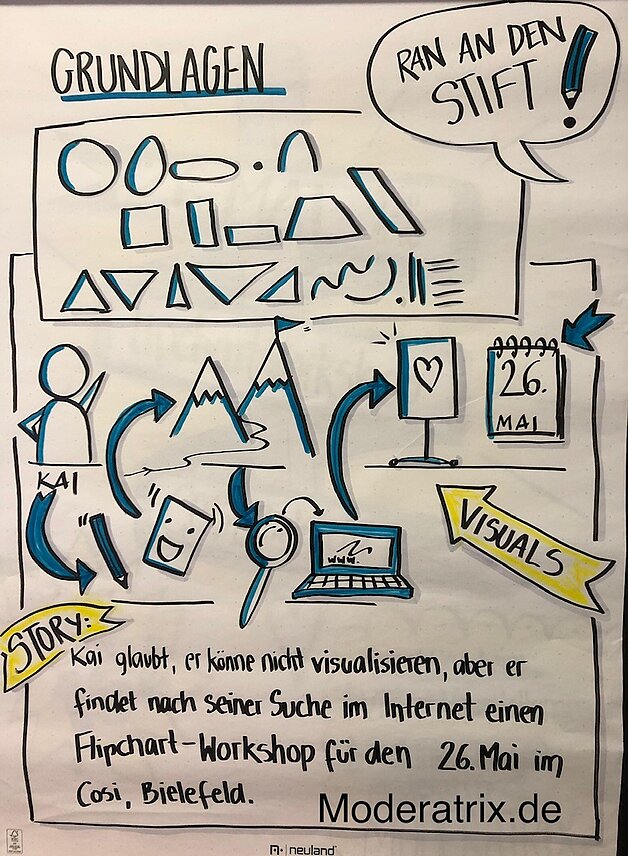 GRUNDLAGEN
RAN AN DEN
STIFT!
26.
MAI
KAI
www.
VISUALS
STORY:
Kai glaubt, er könne nicht visualisieren, aber er
findet nach seiner Suche im Internet einen
Flipchart-Workshop für den 26. Mai im
Cosi, Bielefeld.
Moderatrix.de
neuland